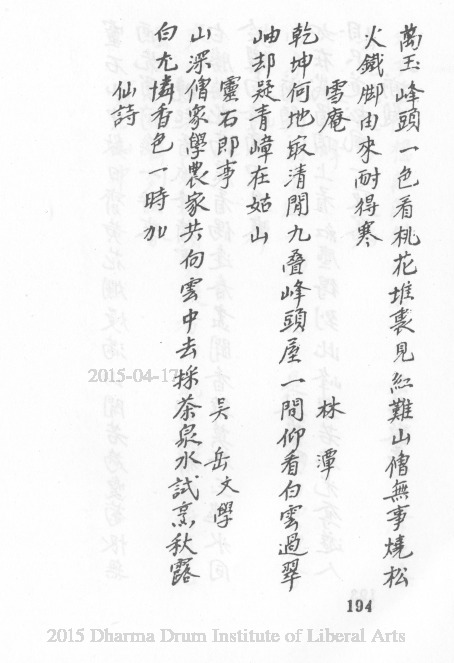 萬玉峰頭一色看桃花堆裏見紅難山僧無事燒松
火鐵脚由來耐得寒
雪庵 林潭
乾坤何地最清閒九叠峰頭屋一間仰看白雲過翠
岫却疑青嶂在姑山
靈石即事 吴岳文學
山深僧家學農家共向雲中去採茶泉水試烹秋露
白尤憐香色一時加
仙詩
2015-04-17
194
2015 Dharma Drum Institute of Liberal Arts